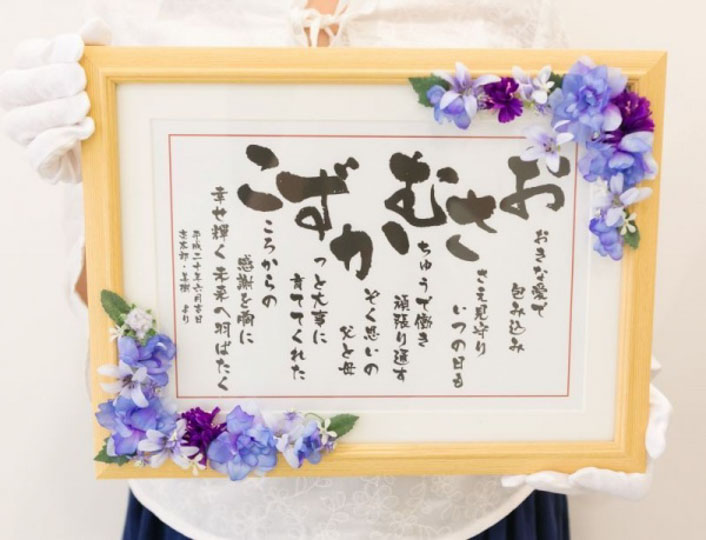 お
おきな愛で
包み込み
さ
さえ見守り
いつの日も
む
ちゅうで働き
頑張り通す
か
ぞく思いの
父と母
ず
っと大事に
育ててくれた
こ
ころからの
感謝を胸に
幸せ輝く未来へ羽ばたく
平成二十年六月吉日
より